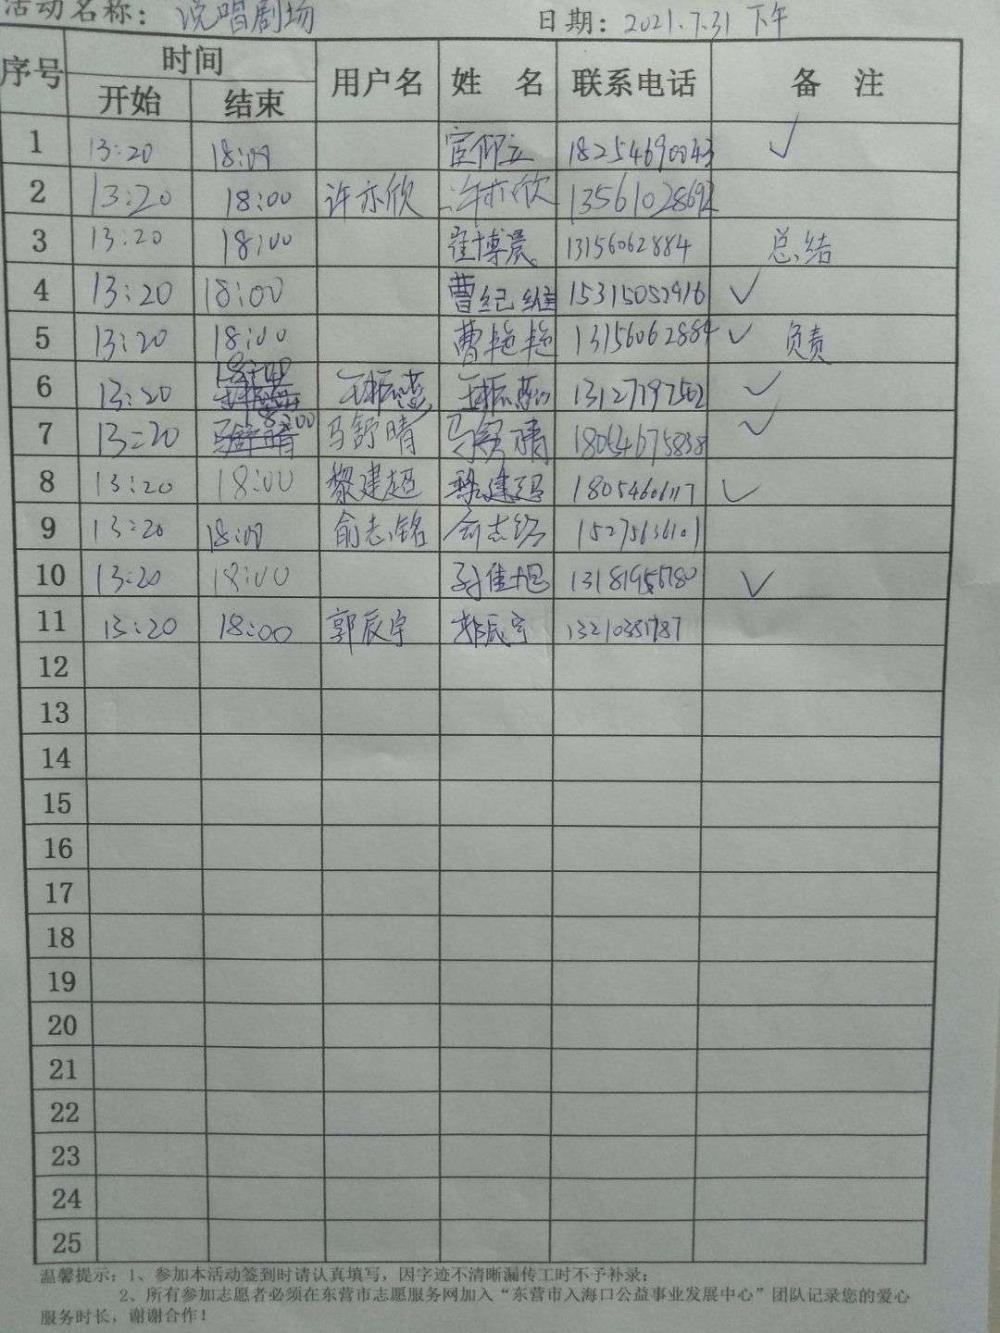 活动名称：说唱剧场 日期：2021.7.31 下午
序号 时间 用户名 姓 名 联系电话 备 注
开始 结束
1 13:20 18:00 18254690043 ✓
2 13:20 18:00 许亦欣 许亦欣 13561028692
3 13:20 18:00 崔博晨 13156062884 总结
4 13:20 18:00 曹纪 ✓
5 13:20 18:00 曹艳艳 13156062884 ✓ 负责
6 13:20 ✓
7 13:20 18:00 马舒晴 马舒晴 ✓
8 13:20 18:00 黎建超 黎建超 ✓
9 13:20 18:00 俞志铭 俞志铭
10 13:20 18:00 孙佳旭 ✓
11 13:20 18:00 郭辰宇 郭辰宇
12
13
14
15
16
17
18
19
20
21
22
23
24
25
温馨提示：1、参加本活动签到时请认真填写，因字迹不清晰漏传工时不予补录；
2、所有参加志愿者必须在东营市志愿服务网加入“东营市入海口公益事业发展中心”团队记录您的爱心
服务时长，谢谢合作！